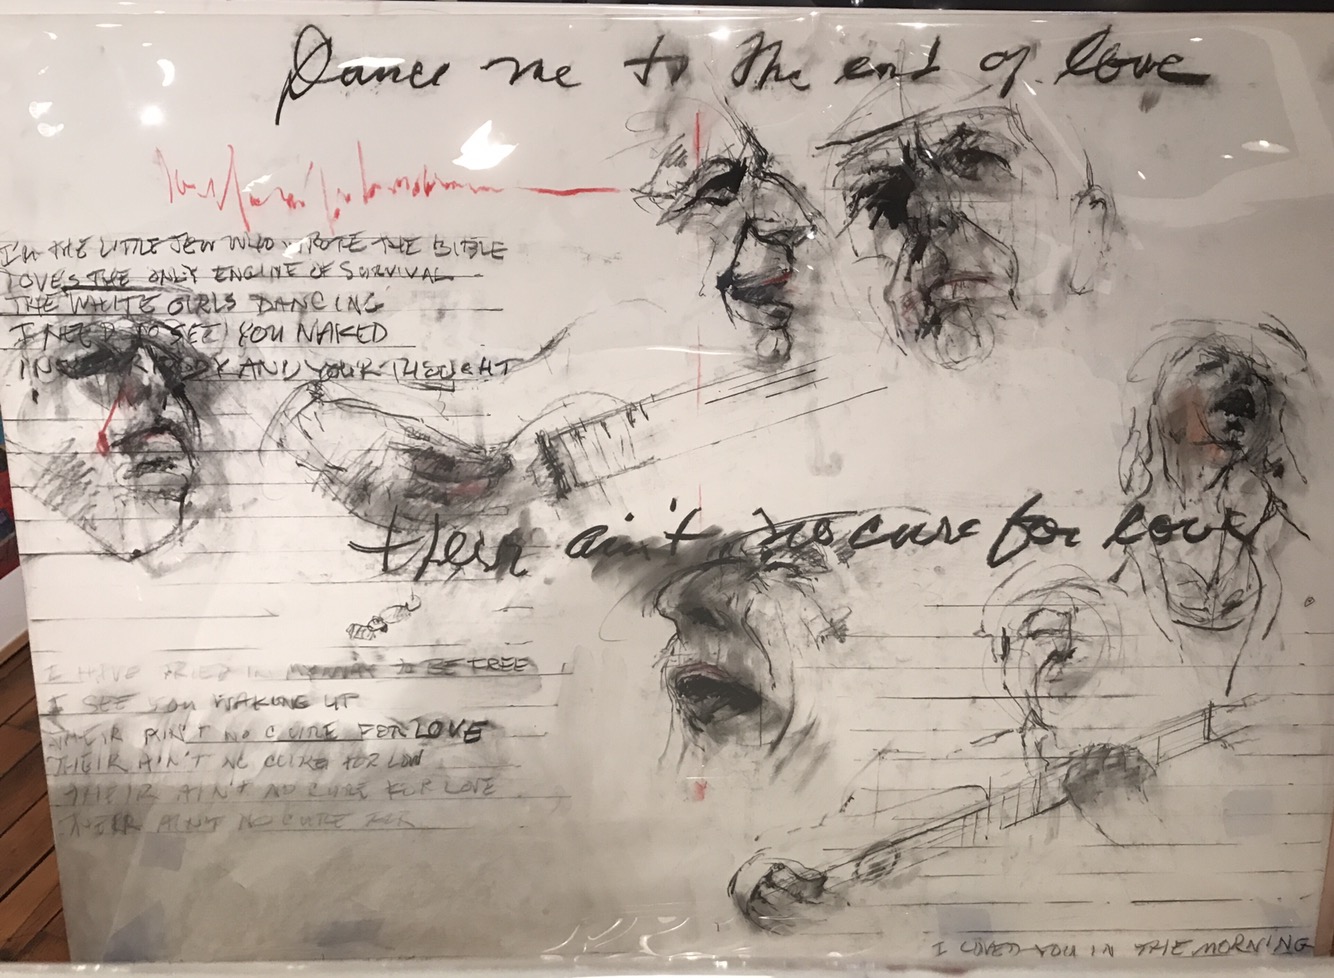 Dance me to the end of love
I'M THE LITTLE JEW WHO WROTE THE BIBLE
LOVES THE ONLY ENGINE OF SURVIVAL
THE WHITE GIRLS DANCING
I NEED TO SEE YOU NAKED
IN YOUR BODY AND YOUR THOUGHT
their ain't no cure for love
I HAVE TRIED IN MY WAY TO BE FREE
I SEE YOU WAKING UP
THEIR AIN'T NO CURE FOR LOVE
THEIR AIN'T NO CURE FOR LOVE
THEIR AIN'T NO CURE FOR LOVE
THEIR AINT NO CURE FOR
I LOVED YOU IN THE MORNING